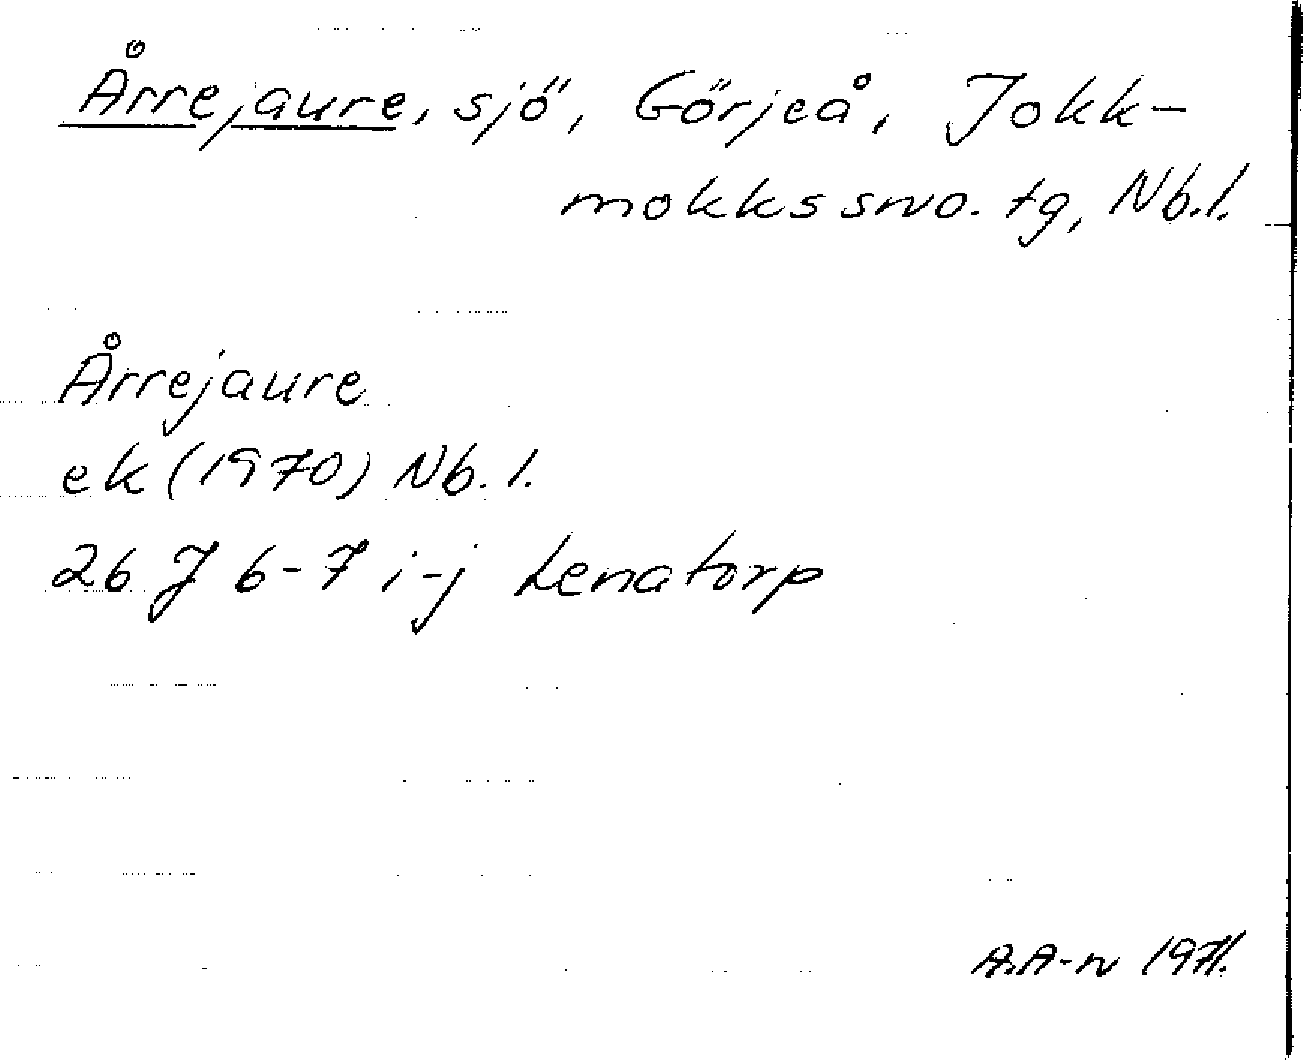 Årrejaure, sjö, Görjeå, Jokk-
mokks svo. tg, Nb.l.
Årrejaure
ek (1970) Nb.l.
26 J 6-7 i-j Lenatorp
A.A-n 1971.